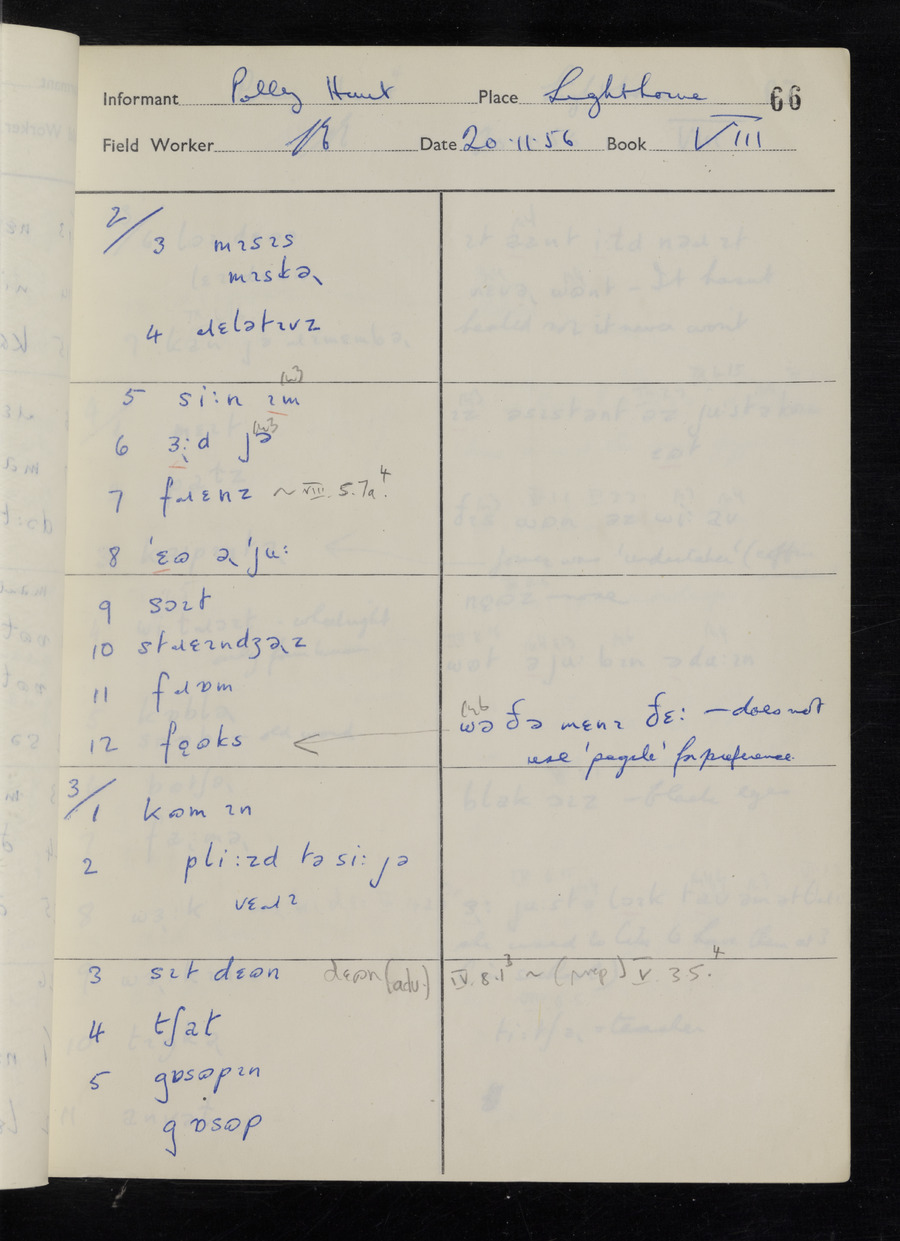 Informant Polley Hunt Place Lighthorne 66
Field Worker Date 20.11.56 Book VIII
2/3 mɪsɪs
mɪskə˞
4 ɹɛlətɪvz
5 si:n ɪm (w3
6 ɜ:˞d jə (w3
7 fɹɛnz ~ VIII. 5. 7a⁴.
8 'ɛɷ ə˞ 'ju:
9 sɔɪt
10 stɹɛɪndʒə˞z
11 fɹɒm
12 fǫɷks ← wə ðə mɛnɪ ðɛ: – does not
use 'people' for preference.
3/1 kɷm ɪn
2 pli:zd tə si: jə
vɛɹɪ
3 sɪt dɛɷn dɛɷn (adv.) IV. 8. 1³ ~ (prep) V. 3 5.⁴
4 tʃat
5 gɒsəpɪn
gɒsəp